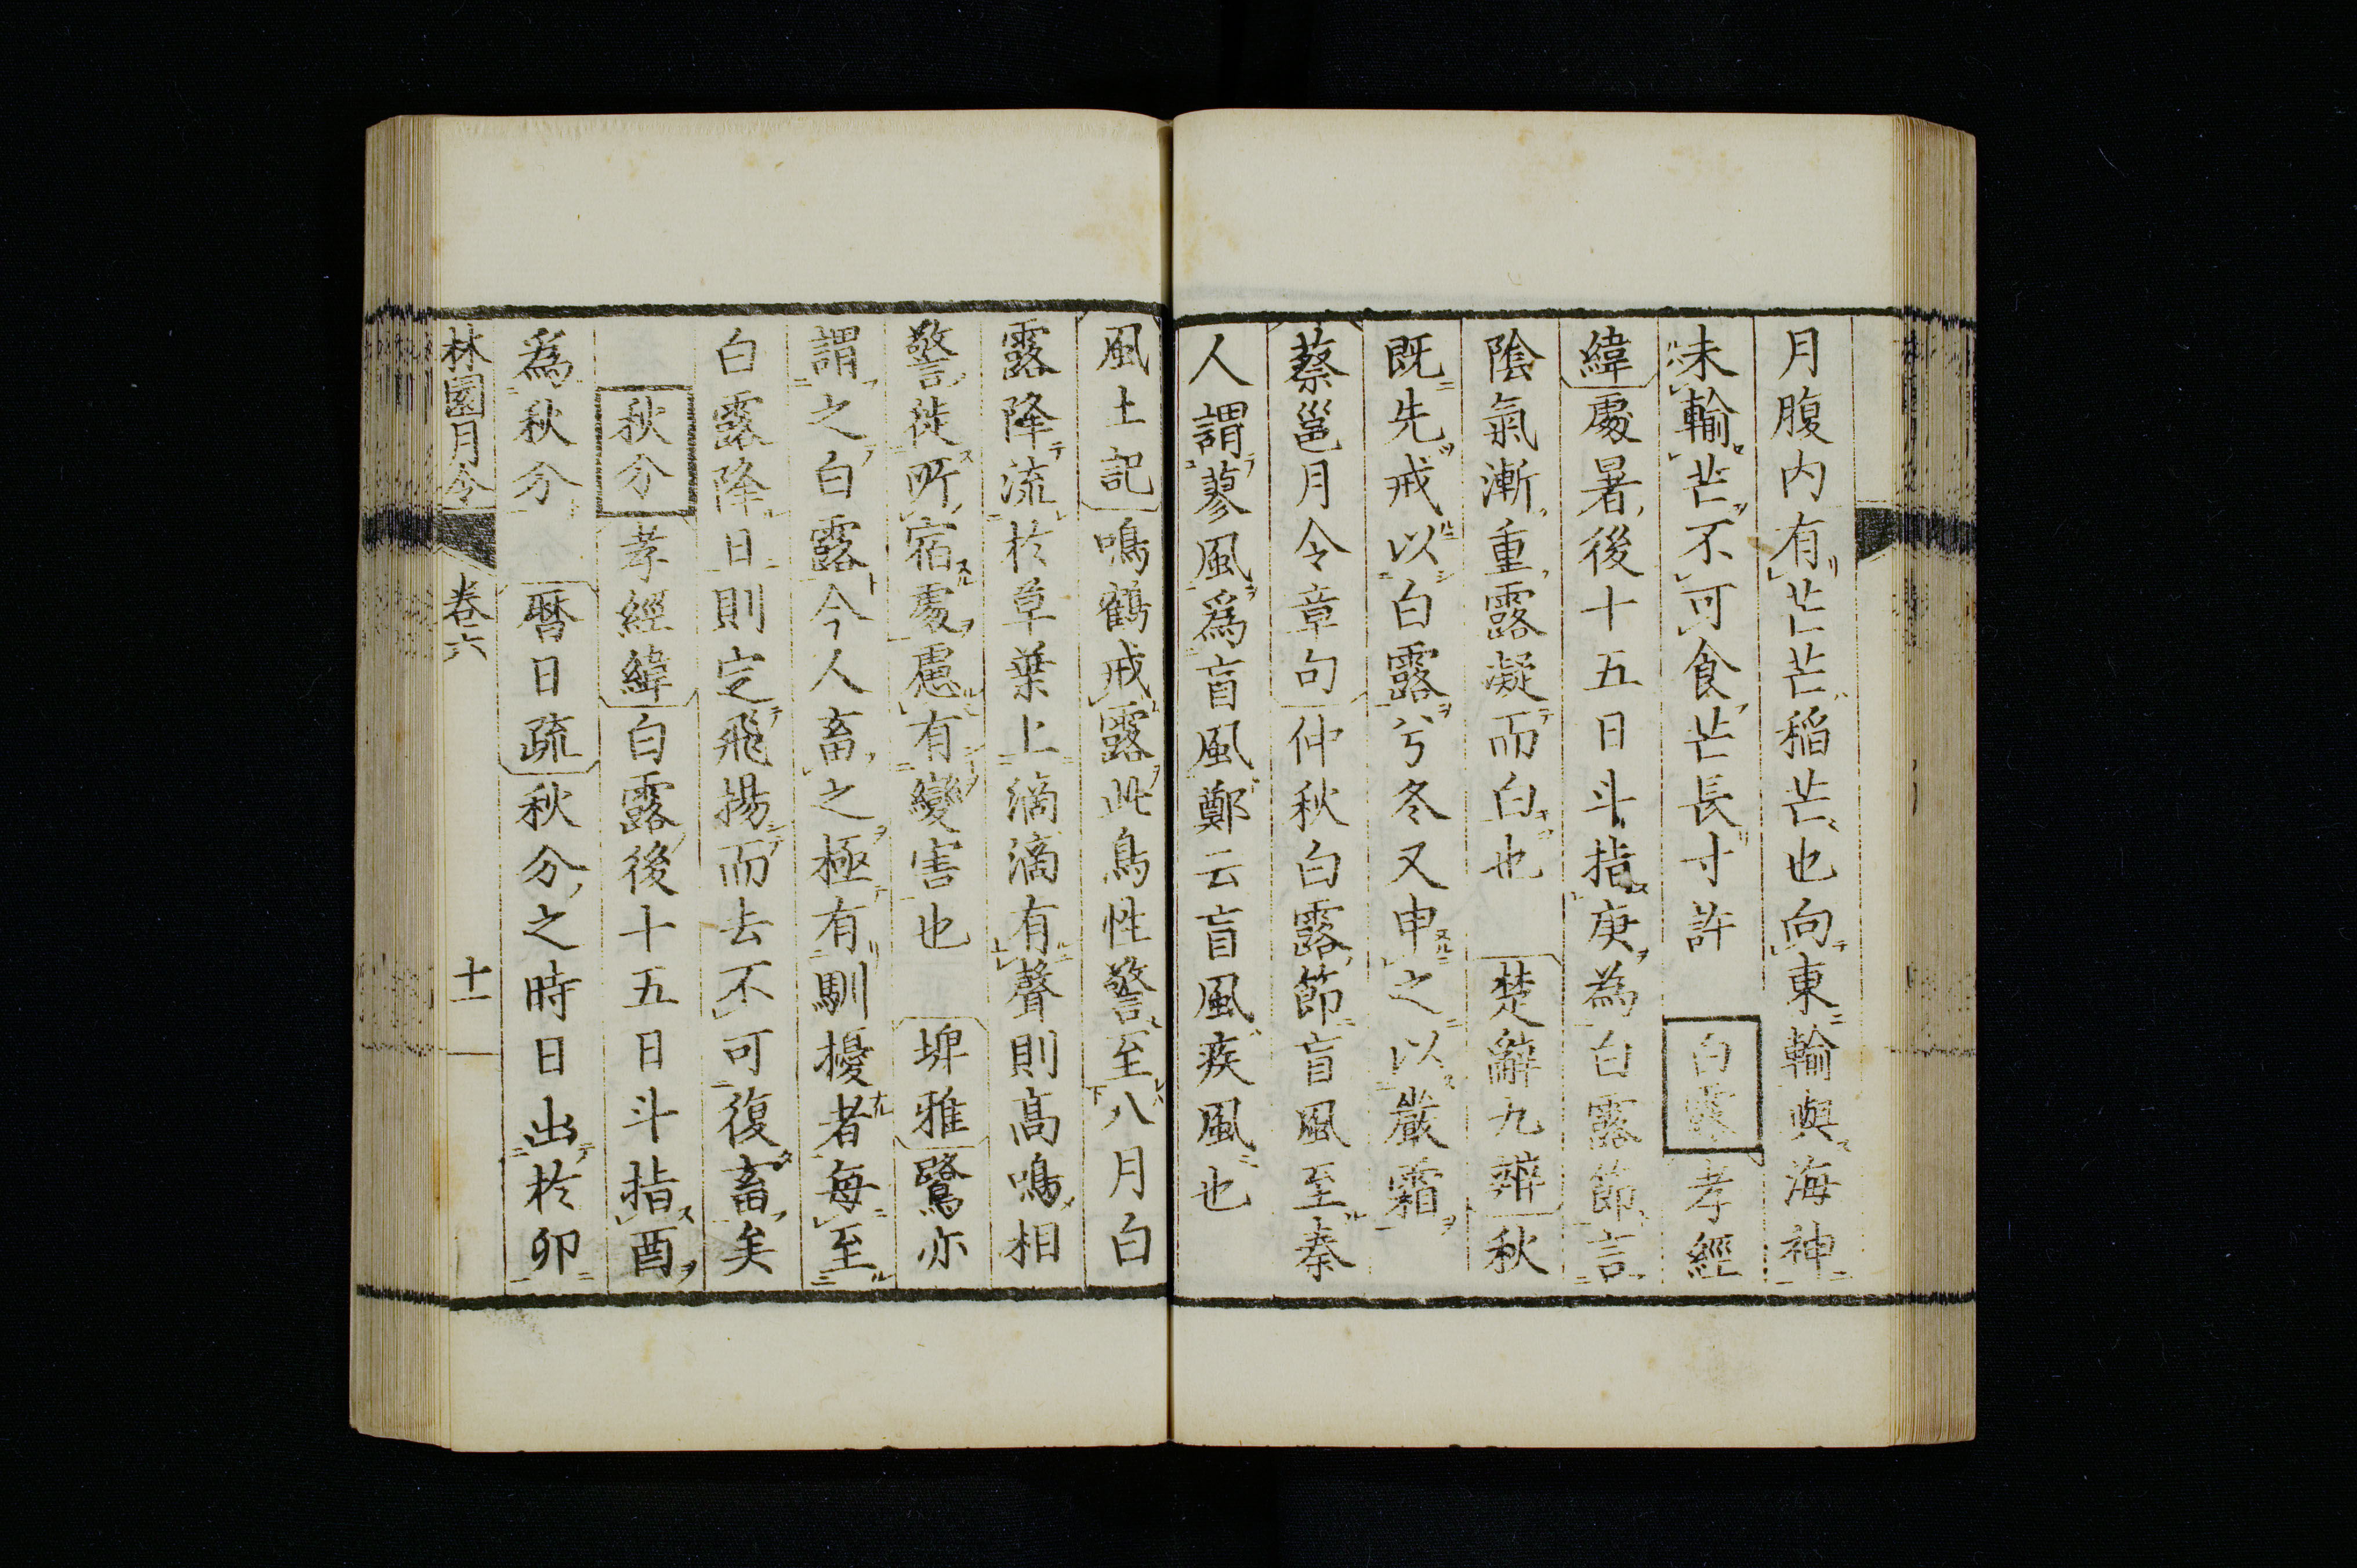 月腹内有芒芒稲芒也向東輸與海神
未輸芒不可食芒長寸許　白露　孝經
緯處暑後十五日斗指庚為白露節言
陰氣漸重露凝而白也　楚辭九辯秋
既先戒以白露兮冬又申之以嚴霜
蔡邕月令章句仲秋白露節盲風至秦
人謂蓼風爲盲風鄭云盲風疾風也
風土記鳴鶴戒露此鳥性警至八月白
露降流於草葉上滴滴有聲則高鳴相
警徙所宿處慮有變害也　埤雅鷺亦
謂之白露今人畜之極有馴擾者毎至
白露降日則定飛揚而去不可復畜矣
秋分　孝經緯白露後十五日斗指酉
爲秋分　暦日疏秋分之時日出於卯
林園月令　卷六　十一